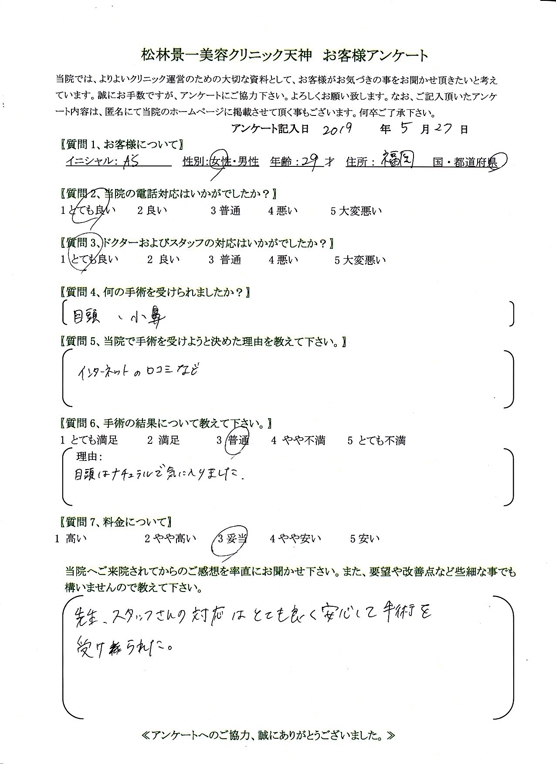 松林景一美容クリニック天神　お客様アンケート
当院では、よりよいクリニック運営のための大切な資料として、お客様がお気づきの事をお聞かせ頂きたいと考え
ています。誠にお手数ですが、アンケートにご協力下さい。よろしくお願い致します。なお、ご記入頂いたアンケ
ート内容は、匿名にて当院のホームページに掲載させて頂く事もございます。何卒ご了承下さい。
アンケート記入日 2019 年 5 月 27 日
〖質問1、お客様について〗
イニシャル: AS 性別:女性・男性 年齢:29才 住所: 福岡 国・都道府県
〖質問2、当院の電話対応はいかがでしたか?〗
1とても良い 2良い 3普通 4悪い 5大変悪い
〖質問3、ドクターおよびスタッフの対応はいかがでしたか?〗
1とても良い 2 良い 3 普通 4悪い 5大変悪い
〖質問4、何の手術を受けられましたか?〗
目頭 、小鼻
〖質問5、当院で手術を受けようと決めた理由を教えて下さい。〗
インターネットの口コミなど
〖質問6、手術の結果について教えて下さい。〗
1 とても満足 2 満足 3 普通 4 やや不満 5 とても不満
理由:
目頭はナチュラルで気に入りました.
〖質問7、料金について〗
1 高い 2やや高い 3妥当 4やや安い 5安い
当院へご来院されてからのご感想を率直にお聞かせ下さい。また、要望や改善点など些細な事でも
構いませんので教えて下さい。
先生、スタッフさんの対応はとても良く安心して手術を
受けられました。
≪アンケートへのご協力、誠にありがとうございました。≫